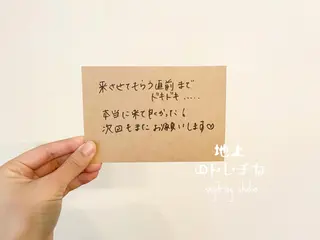 来させてもらう直前まで
ドキドキ.....
本当に来て良かった!
次回もまたお願いします♡
地上
のトレチカ